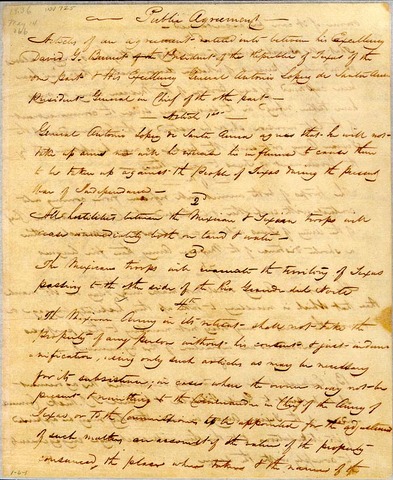 1836 No 125
May 14
Public Agreement
Articles of an agreement entered into between his Excellency
David G. Burnet President of the Republic of Texas of the
one part & His Excellency General Antonio Lopez de Santa Anna
President General in Chief of the other part—
Article 1st—
General Antonio Lopez de Santa Anna agrees that he will not
take up arms nor will he exercise his influence to cause them
to be taken up against the People of Texas during the present
War of Independence—
2
All hostilities between the Mexican & Texian troops will
cease immediately both on land & water—
3
The Mexican troops will evacuate the territory of Texas
passing to the other side of the Rio Grande del Norte
4th
The Mexican Army in its retreat shall not take the
property of any person without his consent & just indem
nification, using only such articles as may be necessary
for its subsistence, in cases where the owner may not be
present & remitting to the Commander in Chief of the Army of
Texas or to the Commissioner to be appointed for the adjustment
of such matters an account of the value of the property
consumed, the place where taken & the name of the